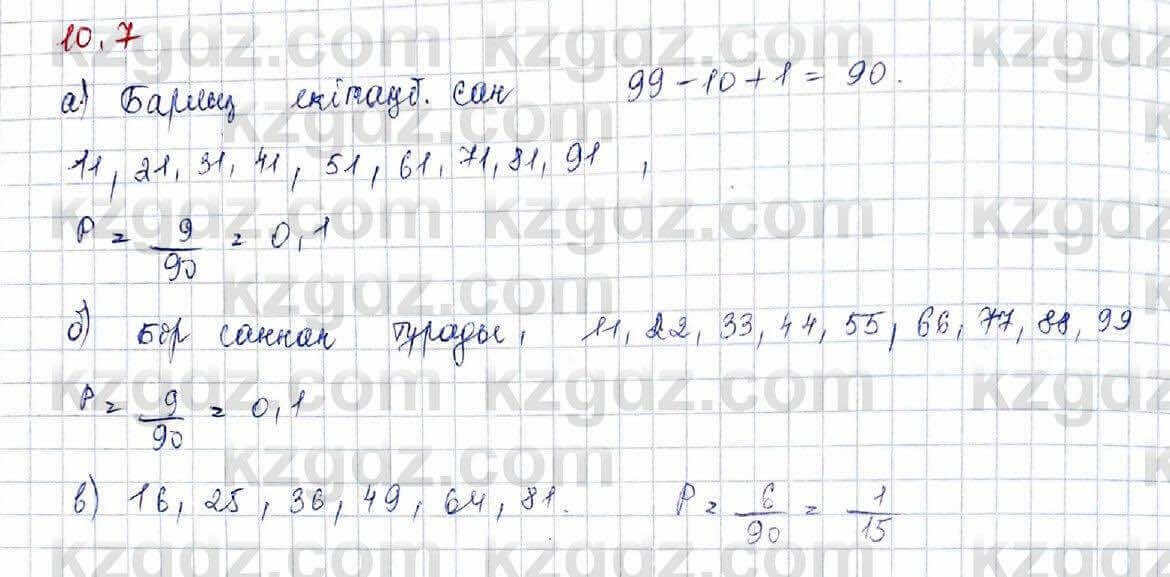 10.7
а) Барлық екітаңб. сан 99-10+1= 90.
11, 21, 31, 41, 51, 61, 71, 81, 91,
P = 9/90 = 0,1
б) Бір саннан тұрады, 11, 22, 33, 44, 55, 66, 77, 88, 99
P = 9/90 = 0,1
в) 16, 25, 36, 49, 64, 81. P = 6/90 = 1/15